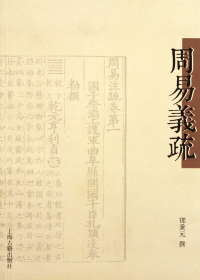 周易義疏
鄧秉元 撰
周易注疏卷第一
國子祭酒上護軍曲阜縣開國子臣孔穎達奉
勅撰
乾元亨利貞
上海古籍出版社